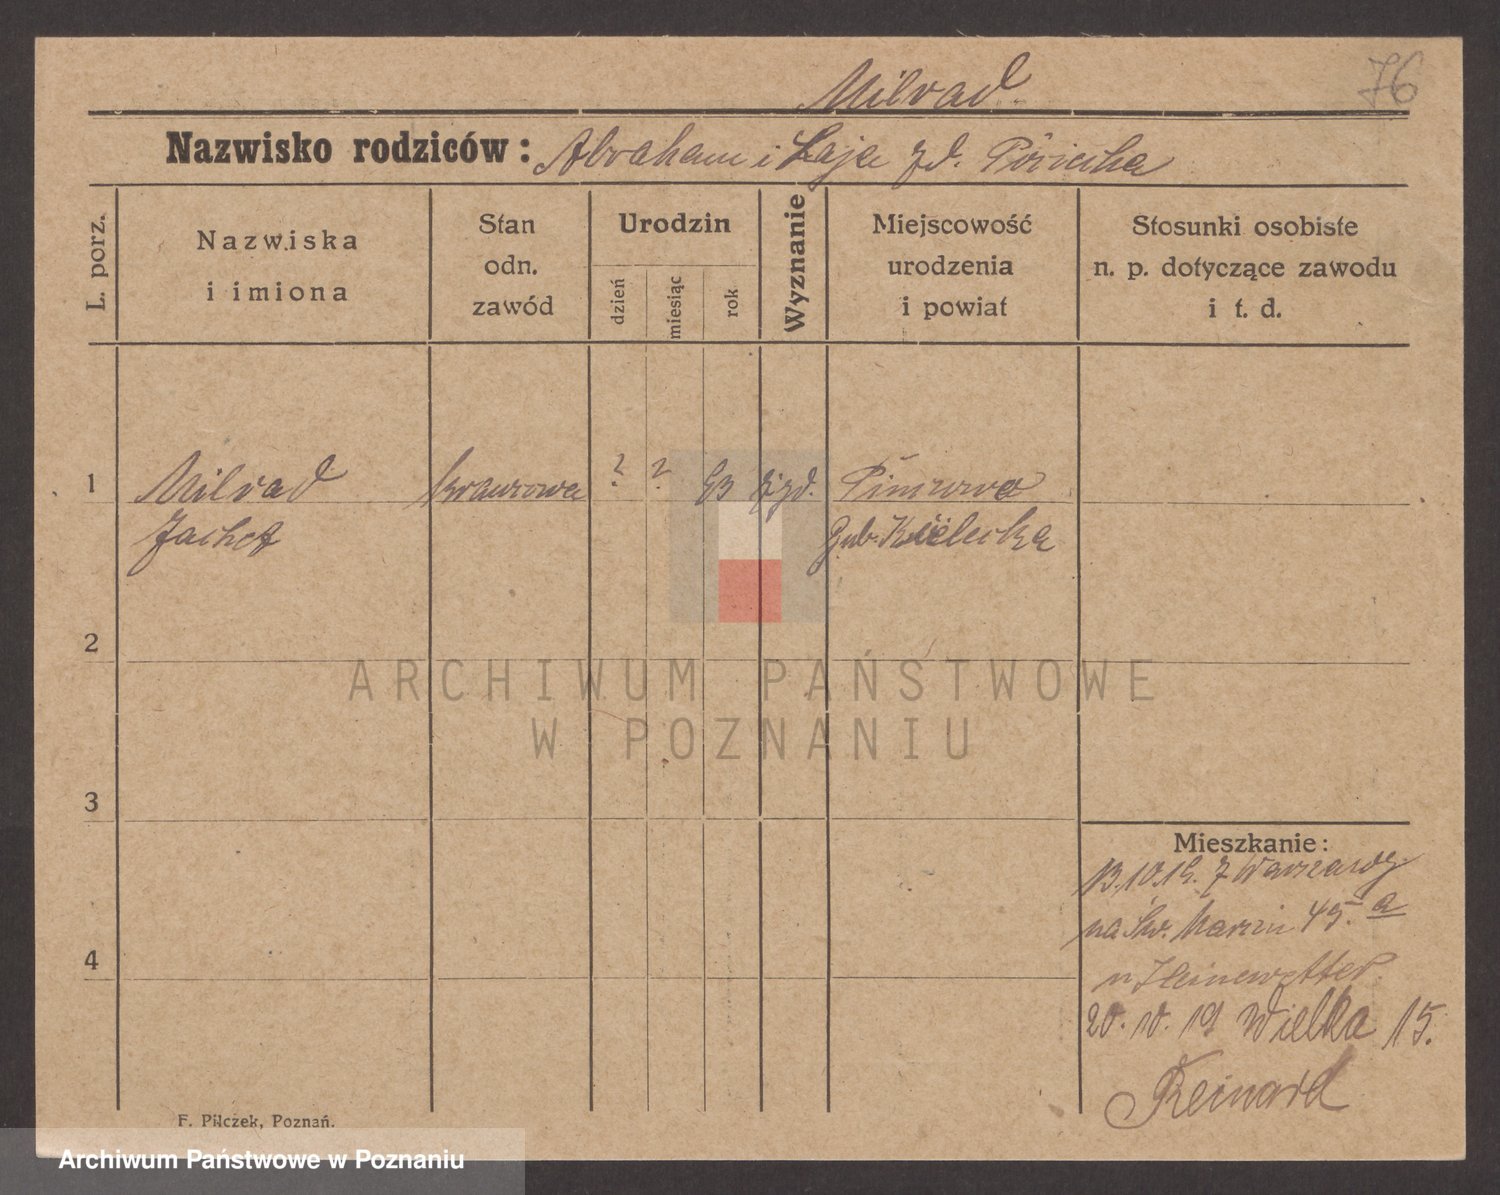 Milrad
76
Nazwisko rodziców: Abraham i Łaja zd.
L. porz.
Nazwiska
i imiona
Stan
odn.
zawód
Urodzin
dzień
miesiąc
rok
Wyznanie
Miejscowość
urodzenia
i powiat
Stosunki osobiste
n. p. dotyczące zawodu
i t. d.
1
Milrad
krawcowa
? ?
żyd.
Jachet
Gub. Kielecka
2
ARCHIWUM PAŃSTWOWE
W POZNANIU
3
Mieszkanie:
13.10.19. z Warszawy
na Św. Marcin 45. a
4
20. 10. 19 Wielka 15.
Reinard
F. Pilczek, Poznań.
Archiwum Państwowe w Poznaniu